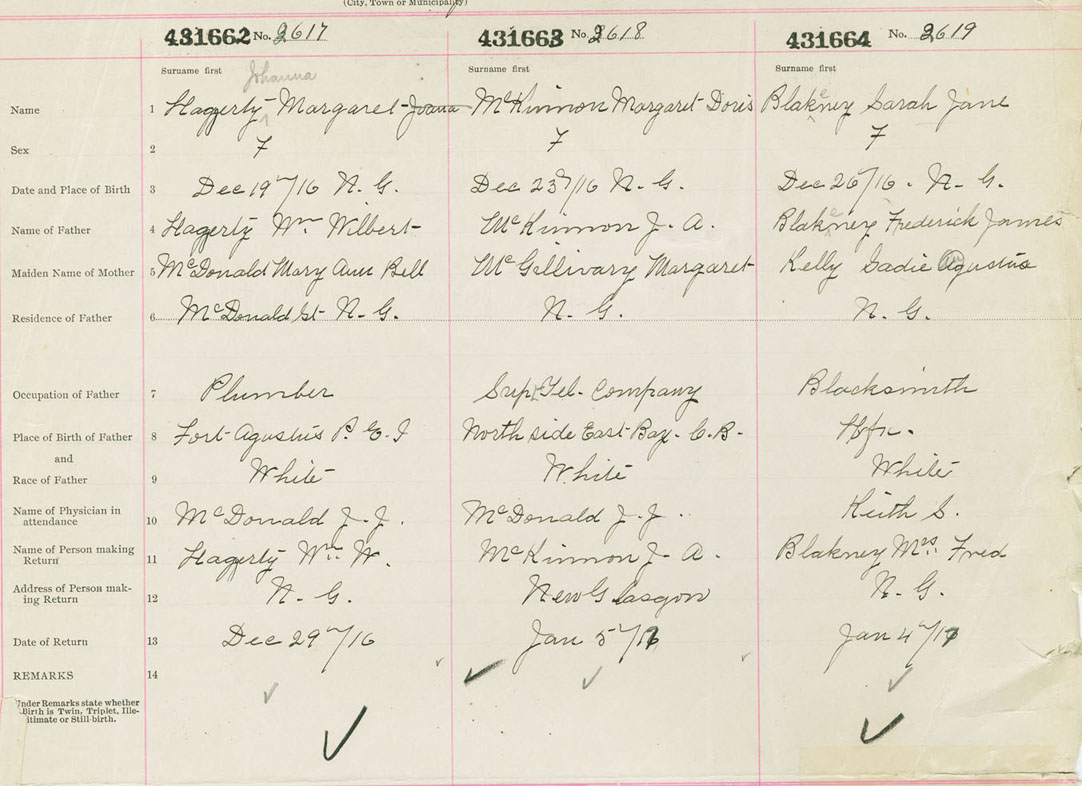 (City, Town or Municipality)
431662 No. 2617 431663 No. 2618 431664 No. 2619
Surname first Surname first Surname first
Johanna
Name 1 Hagerty Margaret Joana McKinnon Margaret Doris Blakeney Sarah Jane
Sex 2 F F F
Date and Place of Birth 3 Dec 19th/16 N. G. Dec 23rd/16 N. G. Dec 26th/16. N. G.
Name of Father 4 Hagerty Wm Wilbert McKinnon J. A. Blakeney Frederick James
Maiden Name of Mother 5 McDonald Mary Ann Bell McGillivary Margaret Kelly Sadie Agustus
Residence of Father 6 McDonald St N. G. N. G. N. G.
Occupation of Father 7 Plumber Supt Tel. Company Blacksmith
Place of Birth of Father 8 Fort Agustus P. E. I North side East Bay. C. B. Hfx.
and
Race of Father 9 White White White
Name of Physician in
attendance 10 McDonald J. J. McDonald J. J. Keith S.
Name of Person making
Return 11 Hagerty Wm W. McKinnon J. A. Blakney Mrs Fred
Address of Person mak-
ing Return 12 N. G. New Glasgow N. G.
Date of Return 13 Dec 29th/16 Jan 5th/17 Jan 4th/17
REMARKS 14
Under Remarks state whether
Birth is Twin, Triplet, Ille-
itimate or Still-birth.